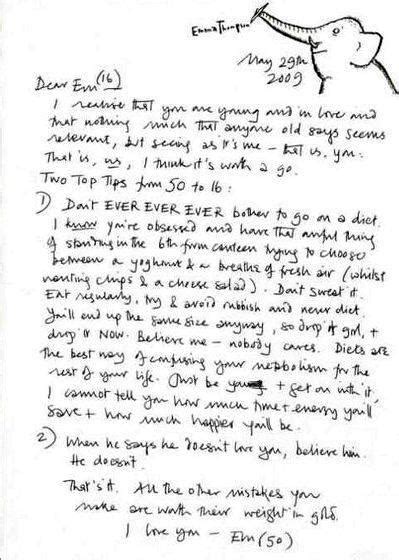 Emma Thompson
May 29th
2009
Dear Em (16)
I realise that you are young and in love and
that nothing much that anyone old says seems
relevant, but seeing as it's me – that is, you.
That is, us, I think it's worth a go.
Two Top Tips from 50 to 16:
1) Don't EVER EVER EVER bother to go on a diet.
I know you're obsessed and have that awful thing
of standing in the 6th form canteen trying to choose
between a yoghourt & a breath of fresh air (whilst
wanting chips & a cheese salad). Don't sweat it.
Eat regularly, try & avoid rubbish and never diet.
You'll end up the same size anyway, so drop it girl, +
drop it NOW. Believe me – nobody cares. Diets are
the best way of confusing your metabolism for the
rest of your life. Just be + get on with it,
I cannot tell you how much time + energy you'll
save + how much happier you'll be.
2) When he says he doesn't love you, believe him.
He doesn't.
That's it. All the other mistakes you
make are worth their weight in gold.
I love you – Em (50)